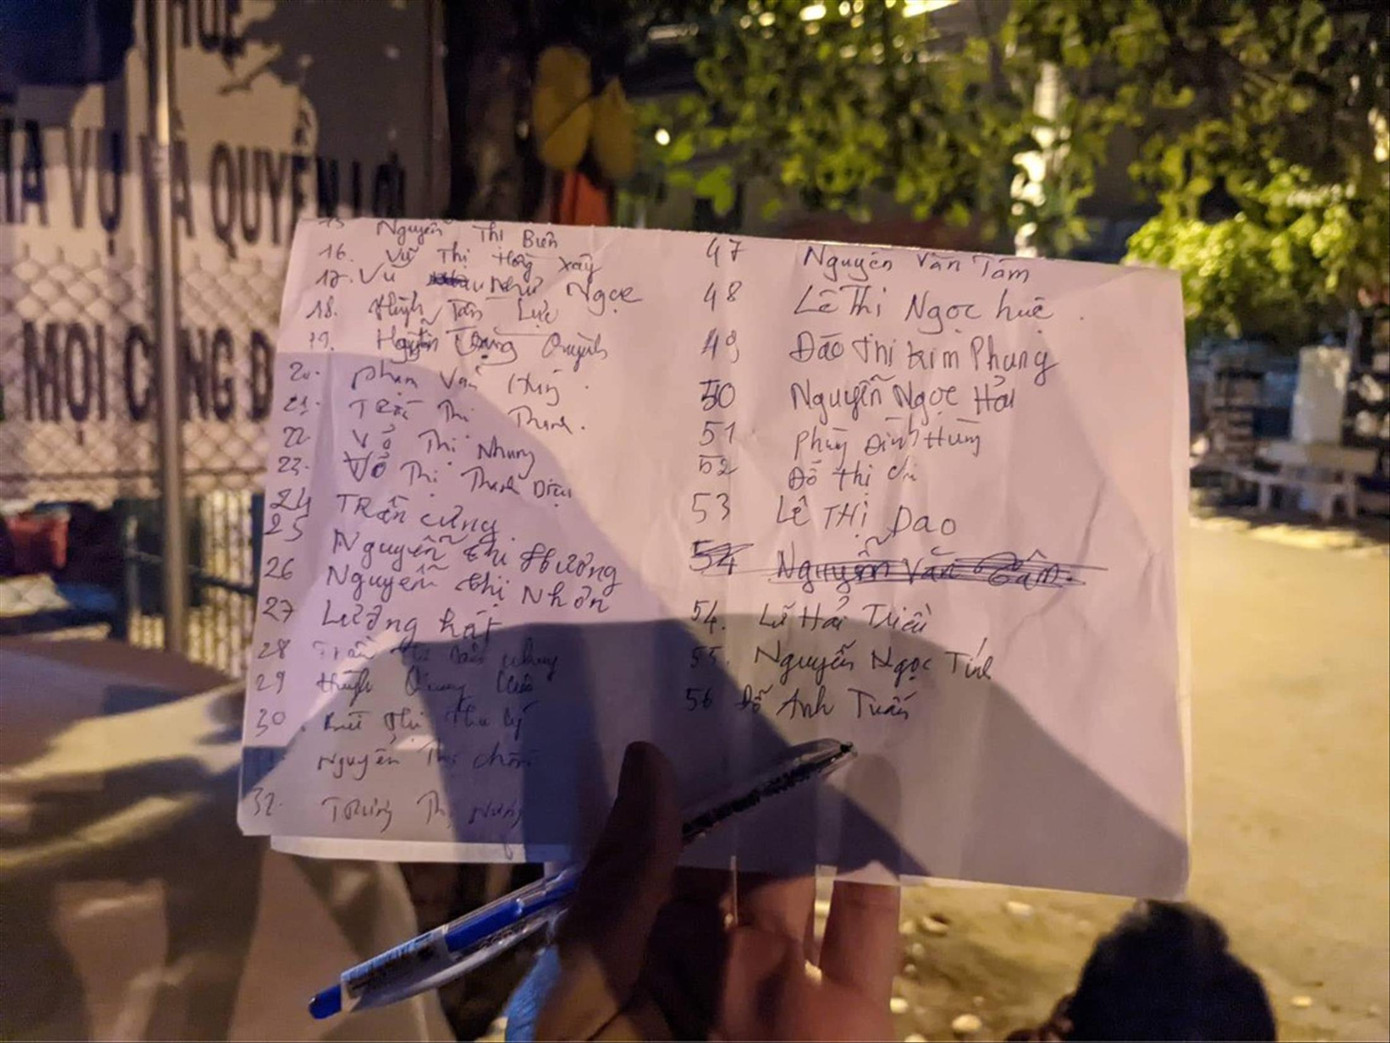 HUẾ
VỤ VÀ QUYỀN LỢI
MỌI CÔNG D
15 Nguyễn Thị Biên
16. Vũ Thị Hồng
17. Vũ Như Ngọc
18. Huỳnh Tấn Lực
19. Nguyễn Quỳnh
20. Phạm Văn
21. Trần Thị Thanh.
22. Võ Thị Nhung
23. Võ Thị Thanh Diệu
24 Trần Cứng
25 Nguyễn thị Hương
26 Nguyễn thị Nhơn
27 Lương hát
28 Trần nhung
29 Huỳnh Quang
30. thị thu lý
Nguyễn Thị
32. Thị
47 Nguyễn Văn Tâm
48 Lê Thị Ngọc huệ
49 Đào thị kim Phụng
50 Nguyễn Ngọc Hải
51 Phùng Đình Hùng
52 Đỗ thị
53 LÊ THỊ DAO
54 Nguyễn Văn Tâm.
54. Lữ Hải Triều
55. Nguyễn Ngọc Tính
56 Đỗ Anh Tuấn